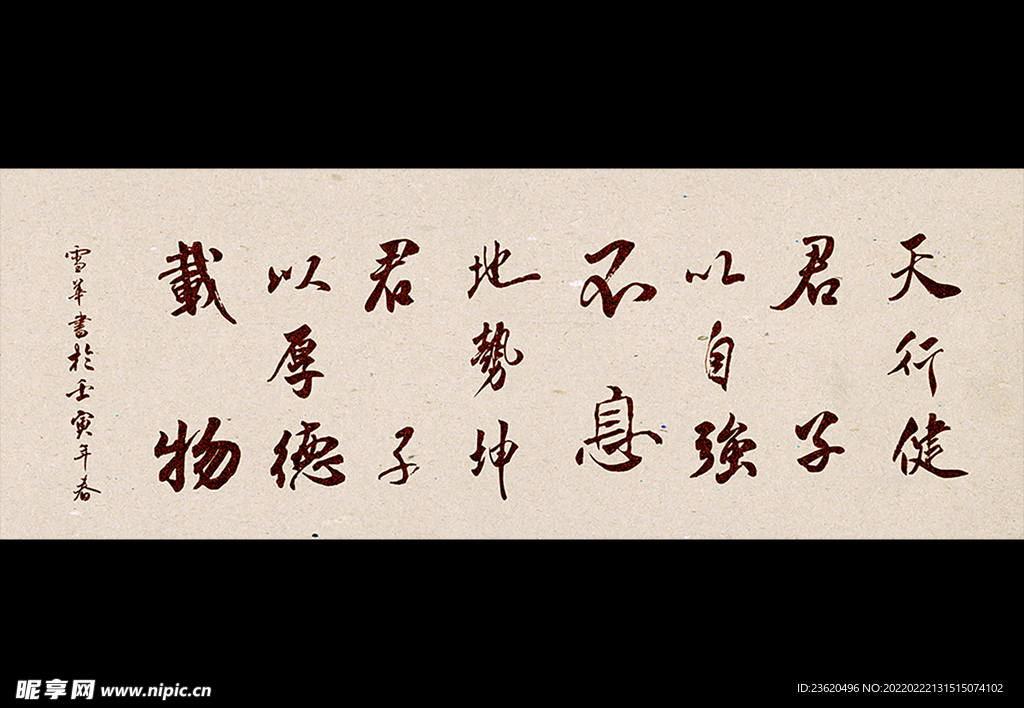 天行健
君子
以自強
不息
地勢坤
君子
以厚德
載物
雪華書於壬寅年春
昵享网 www.nipic.cn
ID:23620496 NO:20220222131515074102